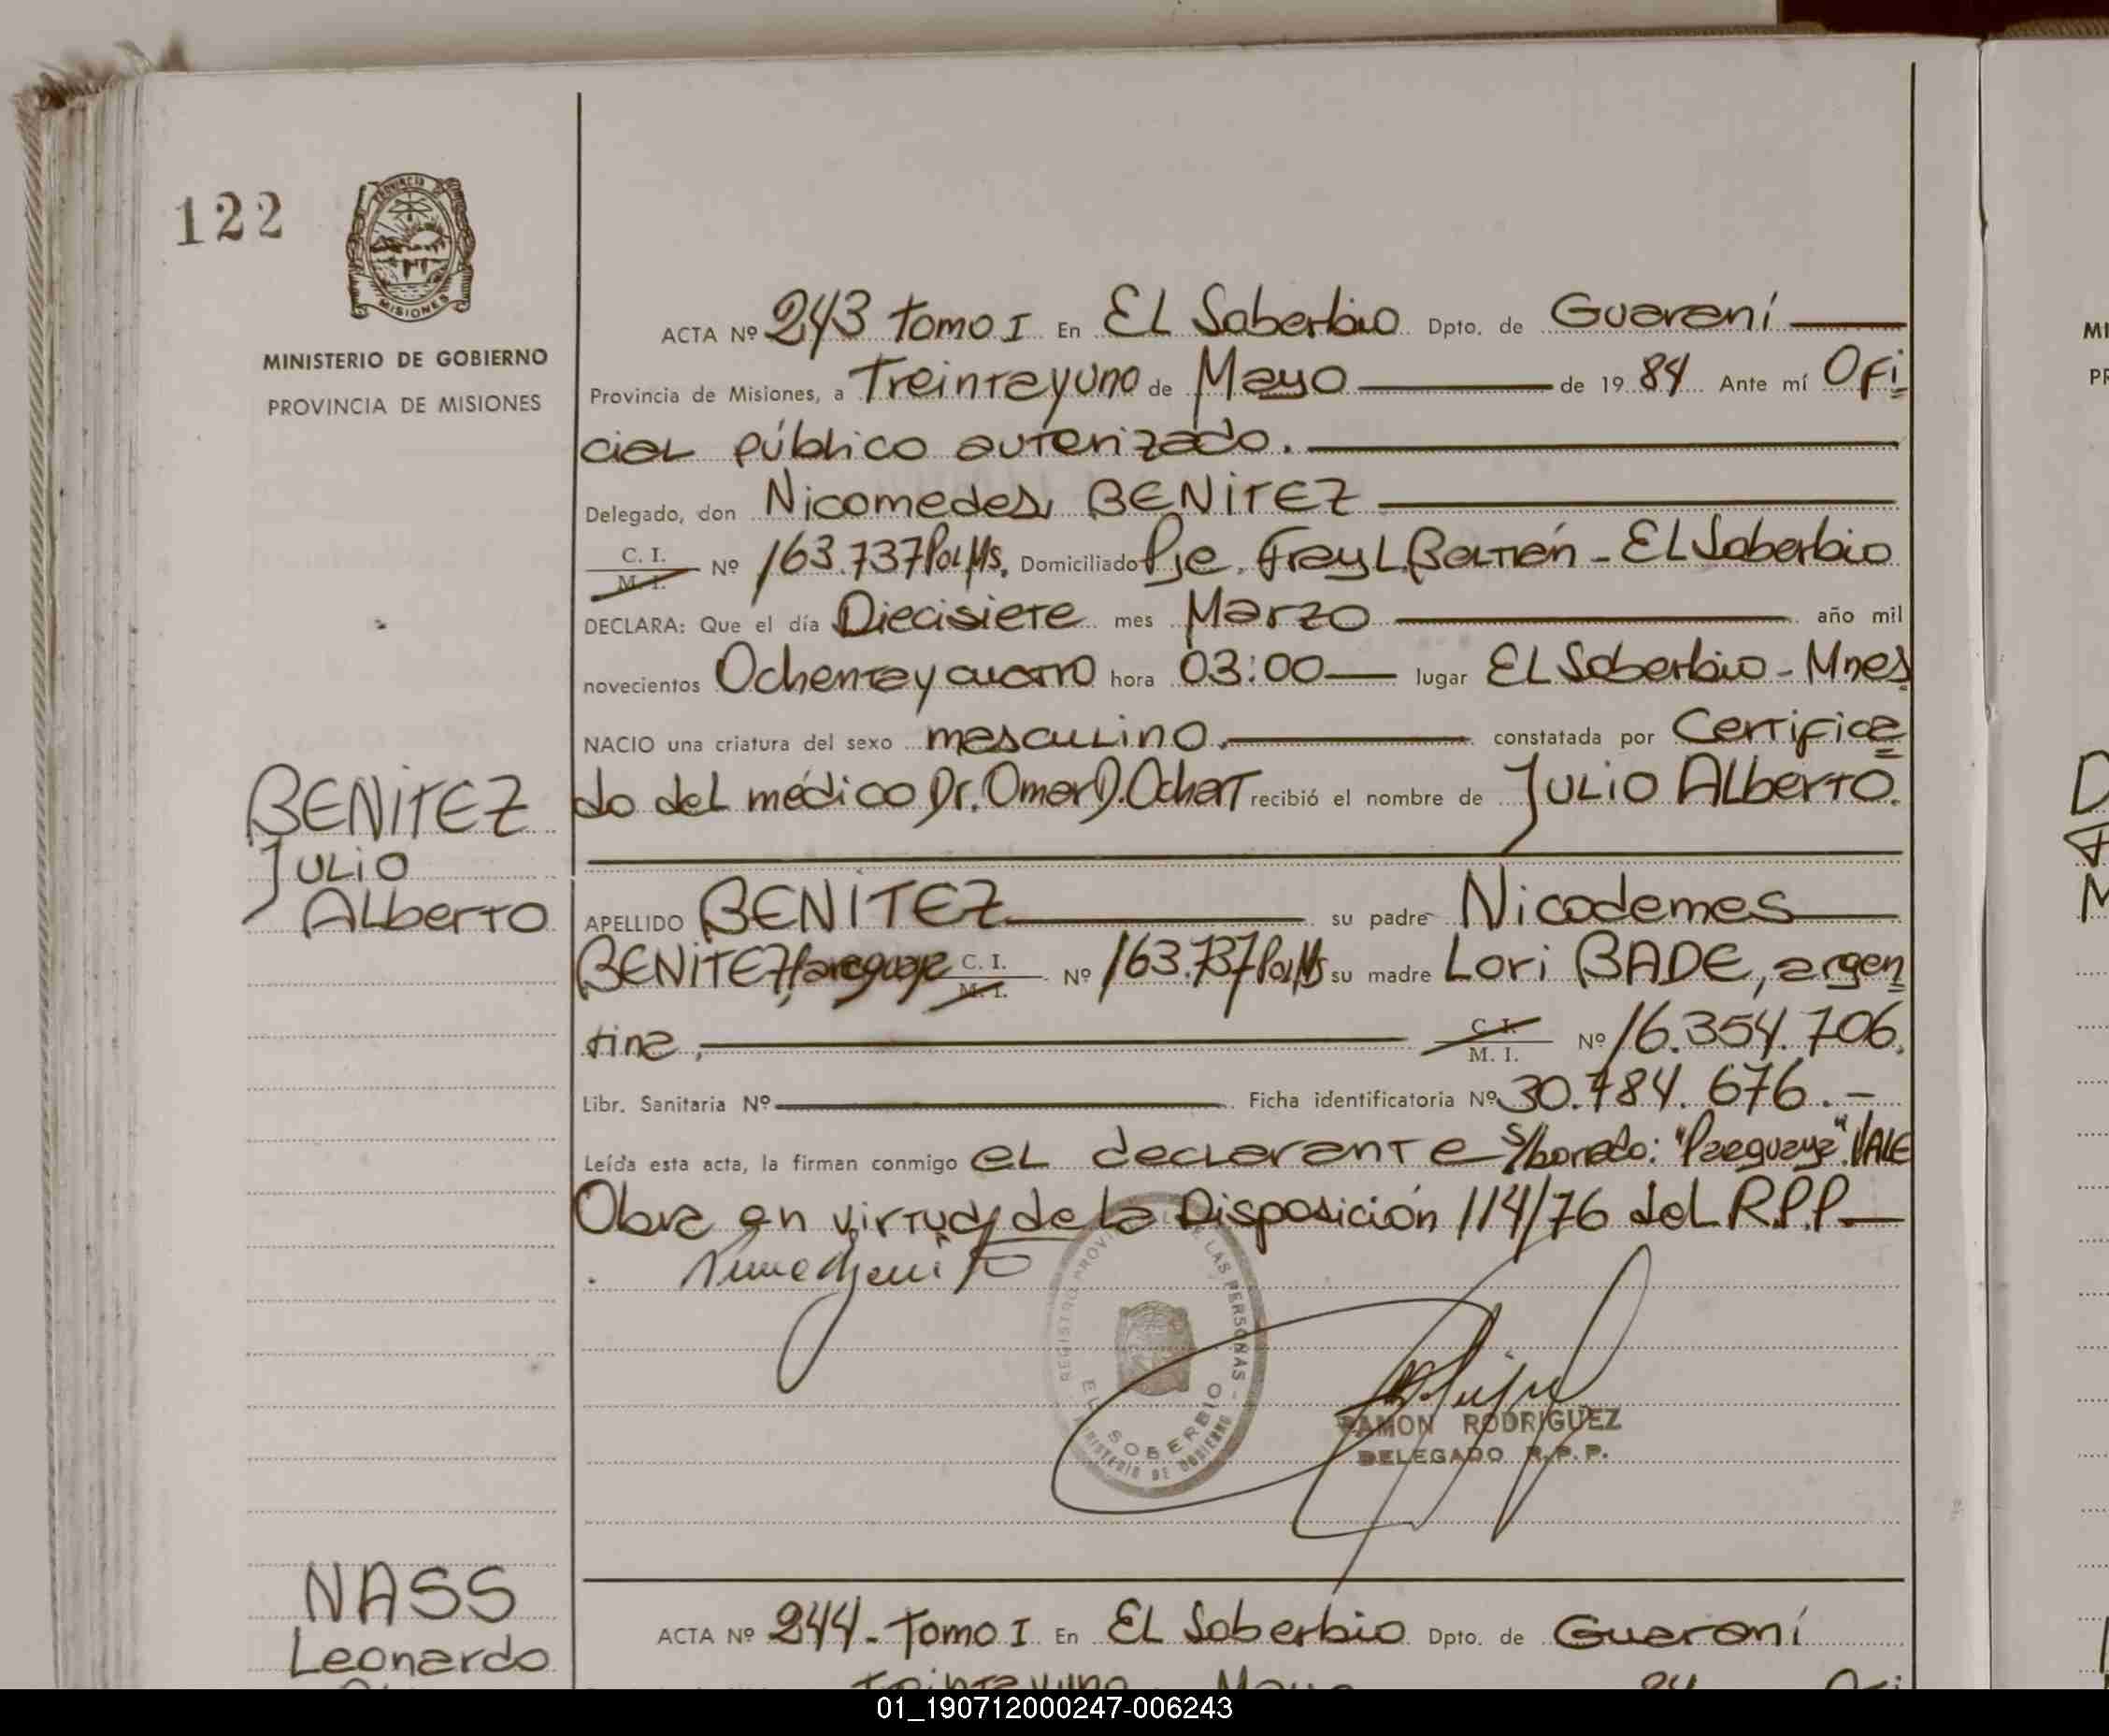 122
PROVINCIA
MISIONES
MINISTERIO DE GOBIERNO
PROVINCIA DE MISIONES
BENITEZ
Julio
Alberto
ACTA Nº 243 Tomo I En El Soberbio Dpto. de Guaraní
Provincia de Misiones, a Treintayuno de Mayo de 19 84 Ante mí Ofi
cial público autorizado.
Delegado, don Nicomedes BENITEZ
C. I. M. I. Nº 163.737 Pol Ms. Domiciliado Pje. Fray L. Beltrán - El Soberbio
DECLARA: Que el día Diecisiete mes Marzo año mil
novecientos Ochentaycuatro hora 03:00 lugar El Soberbio - Mnes
NACIO una criatura del sexo masculino. constatada por Certifica
do del médico Dr. Omar D. Ochat recibió el nombre de Julio Alberto.
APELLIDO BENITEZ su padre Nicodemes
BENITEZ, paraguaya C. I. M. I. Nº 163.737 Pol Ms su madre Lori BADE, argen
tina, C. I. M. I. Nº 16.354.706.
Libr. Sanitaria Nº Ficha identificatoria Nº 30.784.676.-
Leída esta acta, la firman conmigo el declarante s/borrado: "Paraguaya". VALE
Obra en virtud de la Disposición 114/76 del R.P.P.
REGISTRO PROVINCIAL DE LAS PERSONAS
EL SOBERBIO
MINISTERIO DE GOBIERNO
RAMON RODRIGUEZ
DELEGADO R.P.P.
NASS
Leonardo
ACTA Nº 244 - Tomo I En El Soberbio Dpto. de Guaraní
Treintayuno Mayo 84 Ofi
MI
PR
01_190712000247-006243